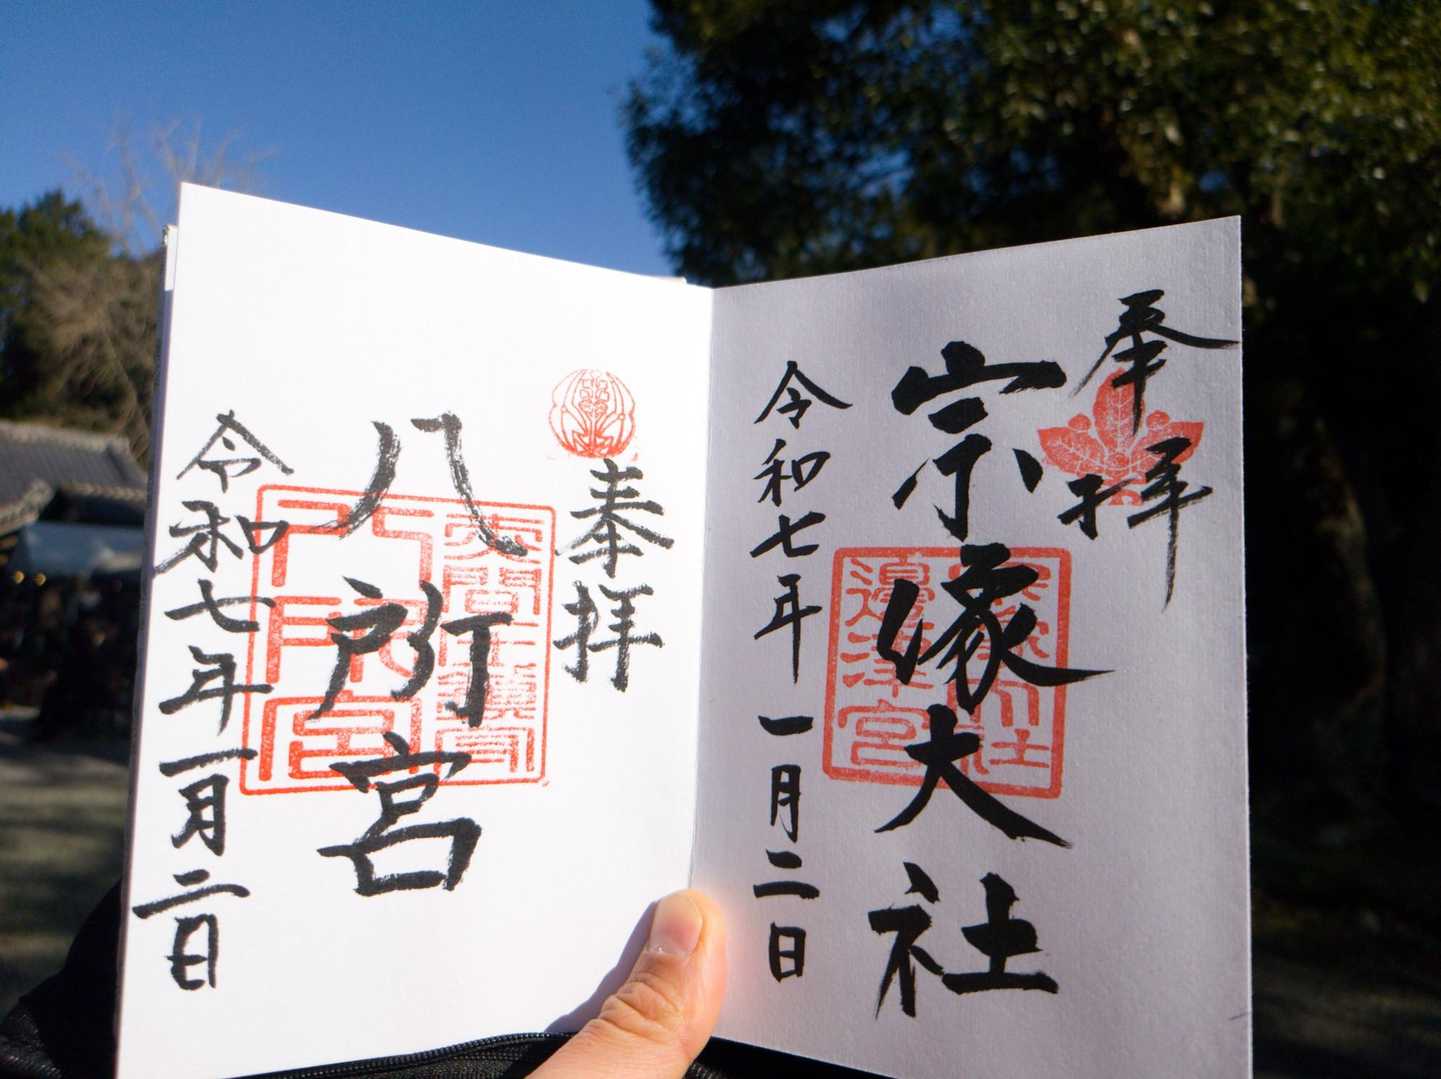 奉拝
宗像大社
令和七年一月二日
宗像大社
邊津宮
奉拝
八所宮
令和七年一月二日
八所宮